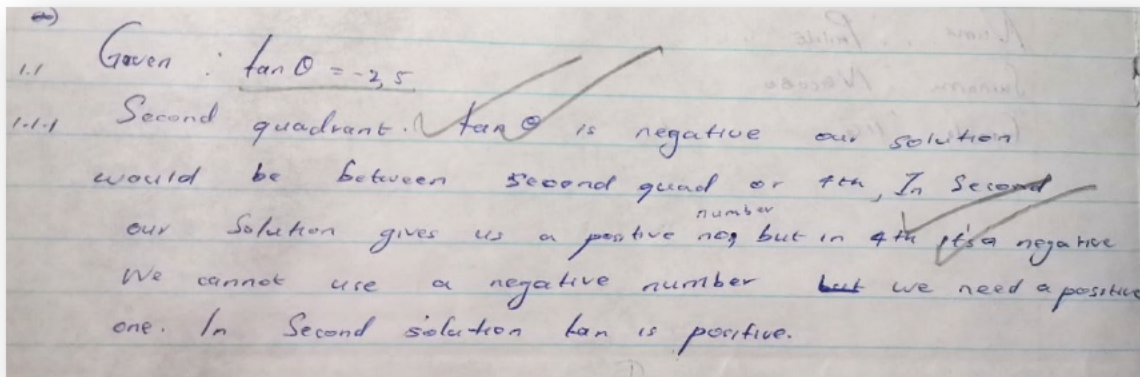 1.1 Given : tan θ = -2,5
1.1.1 Second quadrant. tan θ is negative our solution
would be between second quad or 4th, In Second
number
our Solution gives us a positive neg but in 4th it's a negative
We cannot use a negative number but we need a positive
one. In Second solution tan is positive.